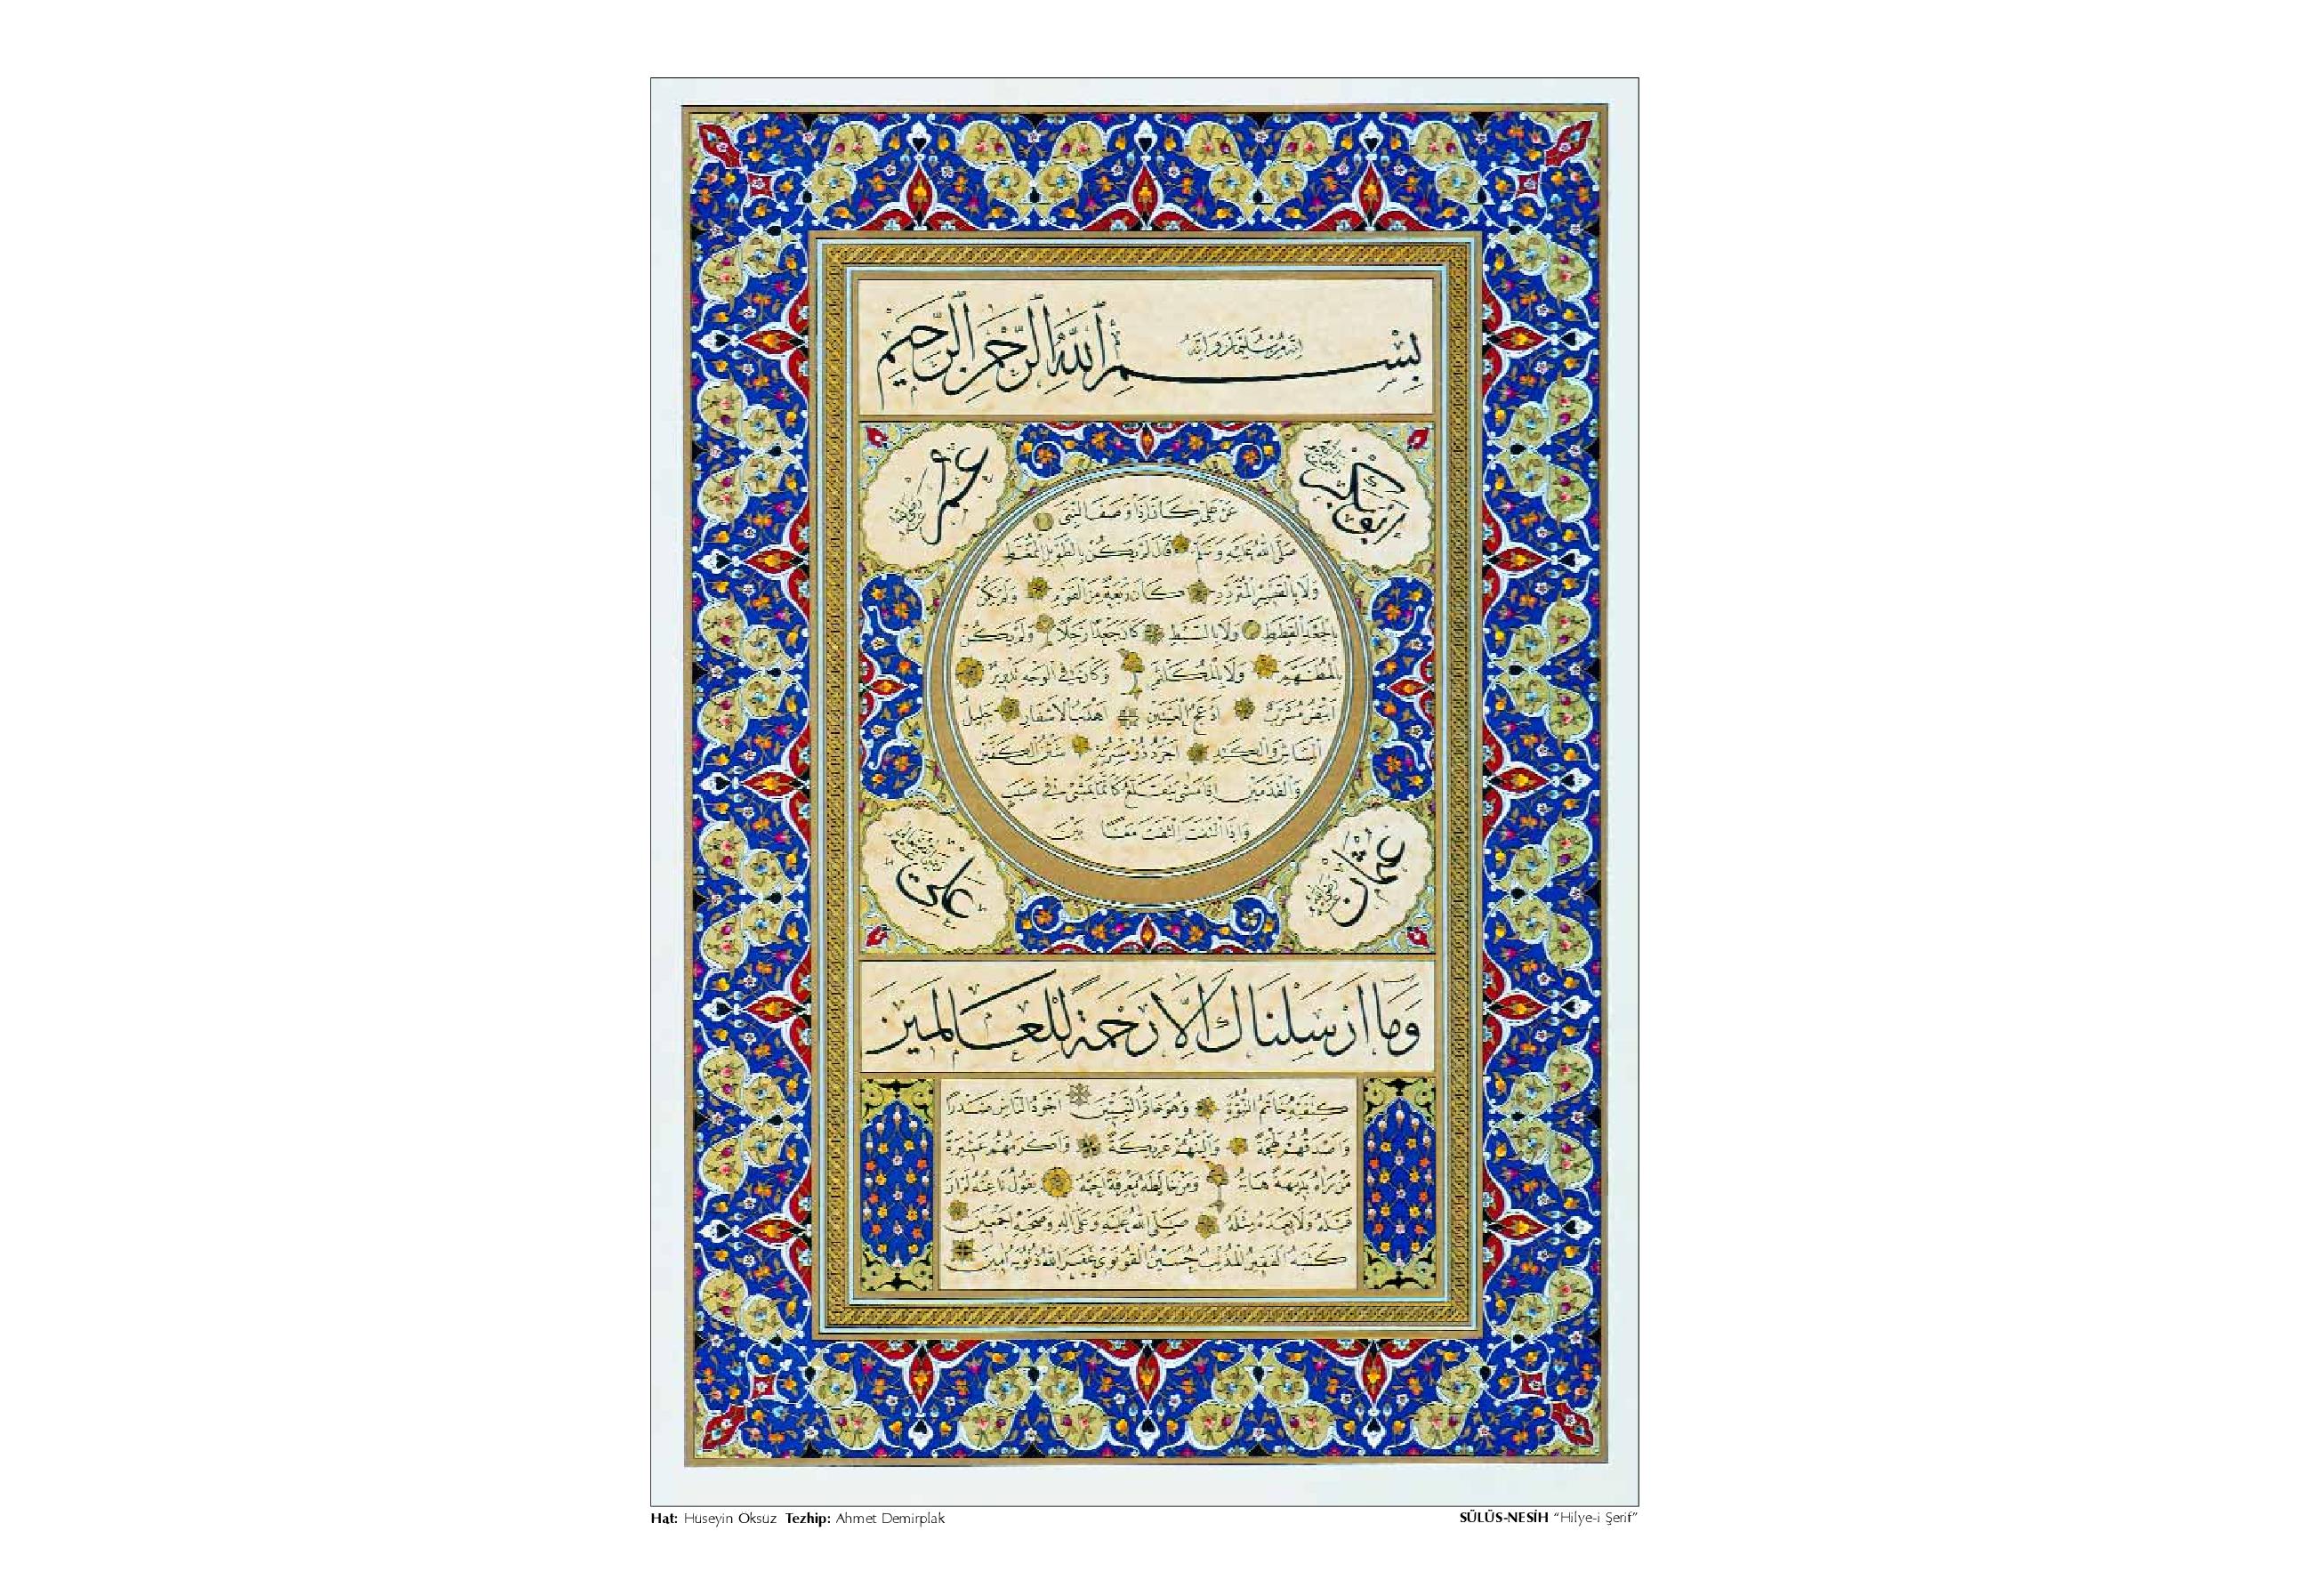 بِسْمِ اللّٰهِ الرَّحْمٰنِ الرَّحِيمِ
اِنَّهُ مِنْ سُلَيْمٰنَ وَاِنَّهُ
ابو بكر
رضى الله عنه
عمر
رضى الله عنه
عَنْ عَلِيٍّ كَانَ اِذَا وَصَفَ النَّبِيَّ
صَلَّى اللهُ عَلَيْهِ وَسَلَّمَ قَالَ لَمْ يَكُنْ بِالطَّوِيلِ الْمُمَّغِطِ
وَلَا بِالْقَصِيرِ الْمُتَرَدِّدِ كَانَ رَبْعَةً مِنَ الْقَوْمِ وَلَمْ يَكُنْ
بِالْجَعْدِ الْقَطَطِ وَلَا بِالسَّبْطِ كَانَ جَعْدًا رَجِلًا وَلَمْ يَكُنْ
بِالْمُطَهَّمِ وَلَا بِالْمُكَلْثَمِ وَكَانَ فِي الْوَجْهِ تَدْوِيرٌ
اَبْيَضُ مُشْرَبٌ اَدْعَجُ الْعَيْنَيْنِ اَهْدَبُ الْاَشْفَارِ جَلِيلُ
الْمُشَاشِ وَالْكَتَدِ اَجْرَدُ ذُو مَسْرُبَةٍ شَثْنُ الْكَفَّيْنِ
وَالْقَدَمَيْنِ اِذَا مَشٰى يَتَقَلَّعُ كَاَنَّمَا يَمْشِي فِي صَبَبٍ
وَاِذَا الْتَفَتَ الْتَفَتَ مَعًا بَيْنَ
عثمان
رضى الله عنه
على
رضى الله عنه
وَمَا اَرْسَلْنَاكَ اِلَّا رَحْمَةً لِلْعَالَمِينَ
كَتِفَيْهِ خَاتَمُ النُّبُوَّةِ وَهُوَ خَاتَمُ النَّبِيِّينَ اَجْوَدُ النَّاسِ صَدْرًا
وَاَصْدَقُهُمْ لَهْجَةً وَاَلْيَنُهُمْ عَرِيكَةً وَاَكْرَمُهُمْ عَشِيرَةً
مَنْ رَاٰهُ بَدِيهَةً هَابَهُ وَمَنْ خَالَطَهُ مَعْرِفَةً اَحَبَّهُ يَقُولُ نَاعِتُهُ لَمْ اَرَ
قَبْلَهُ وَلَا بَعْدَهُ مِثْلَهُ صَلَّى اللهُ عَلَيْهِ وَعَلٰى اٰلِهِ وَصَحْبِهِ اَجْمَعِينَ
كَتَبَهُ الْفَقِيرُ الْمُذْنِبُ حُسَيْنُ الْقُونَوِي غَفَرَ اللهُ ذُنُوبَهُ اٰمِين
Hat: Hüseyin Öksüz Tezhip: Ahmet Demirplak
SÜLÜS-NESİH “Hilye-i Şerif”